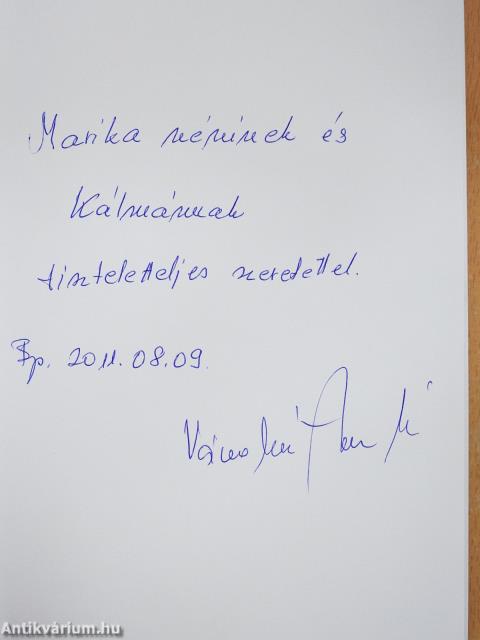 Marika néninek és
Kálmánnak
tiszteletteljes szeretettel.
Bp. 2011.08.09.
Antikvárium.hu